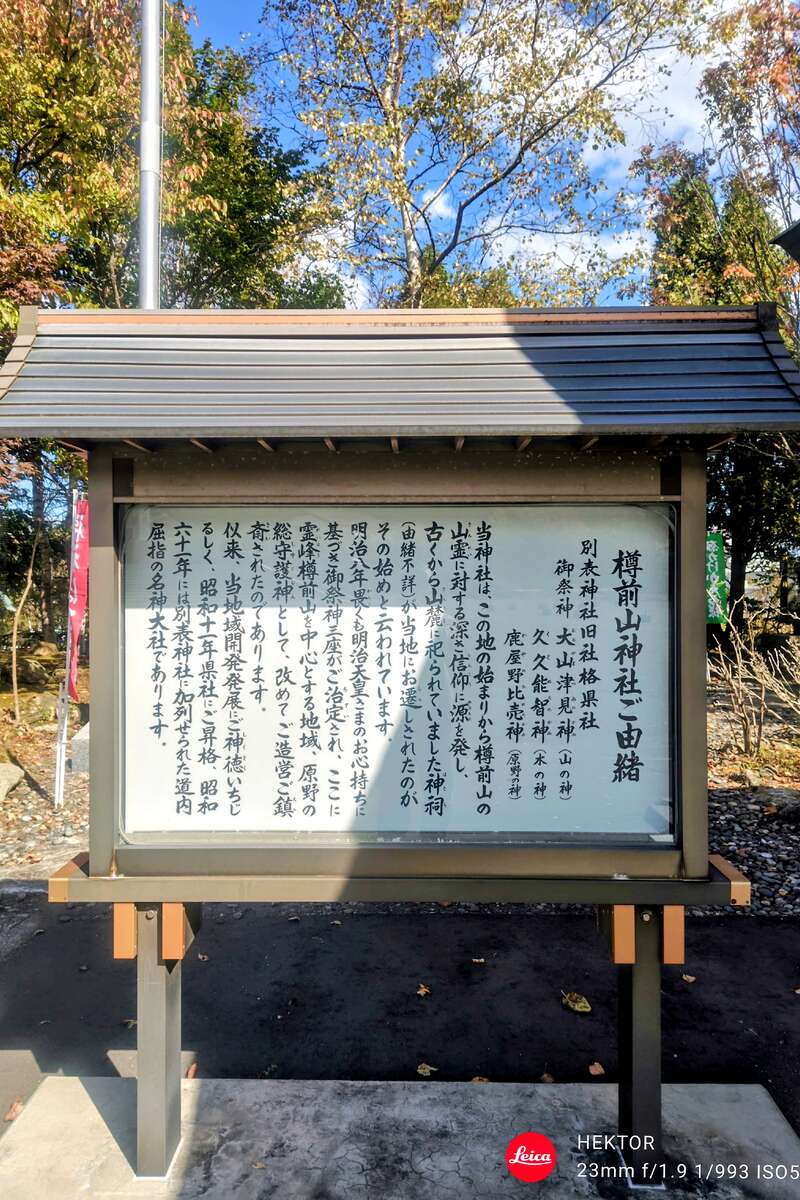 樽前山神社ご由緒
別表神社旧社格県社
御祭神 大山津見神（山の神）
久久能智神（木の神）
鹿屋野比売神（原野の神）
当神社は、この地の始まりから樽前山の
山霊に対する深き信仰に源を発し、
古くから山麓に祀られていました神祠
（由緒不詳）が当地にお遷しされたのが
その始めと云われています。
明治八年畏くも明治天皇さまのお心持ちに
基づき御祭神三座がご治定され、ここに
霊峰樽前山を中心とする地域、原野の
総守護神として、改めてご造営ご鎮
斎されたのであります。
以来、当地域開発発展にご神徳いちじ
るしく、昭和十一年県社にご昇格、昭和
六十一年には別表神社に加列せられた道内
屈指の名神大社であります。
Leica
HEKTOR
23mm f/1.9 1/993 ISO5